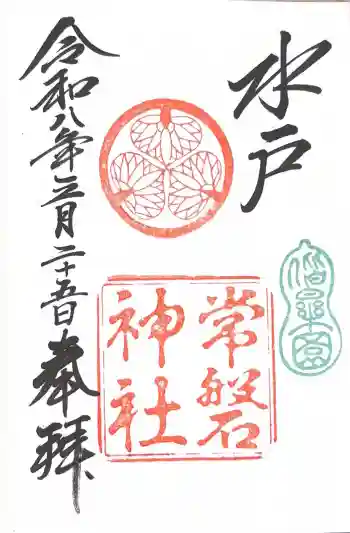 水戸
常磐
神社
令和八年三月二十五日
奉拝